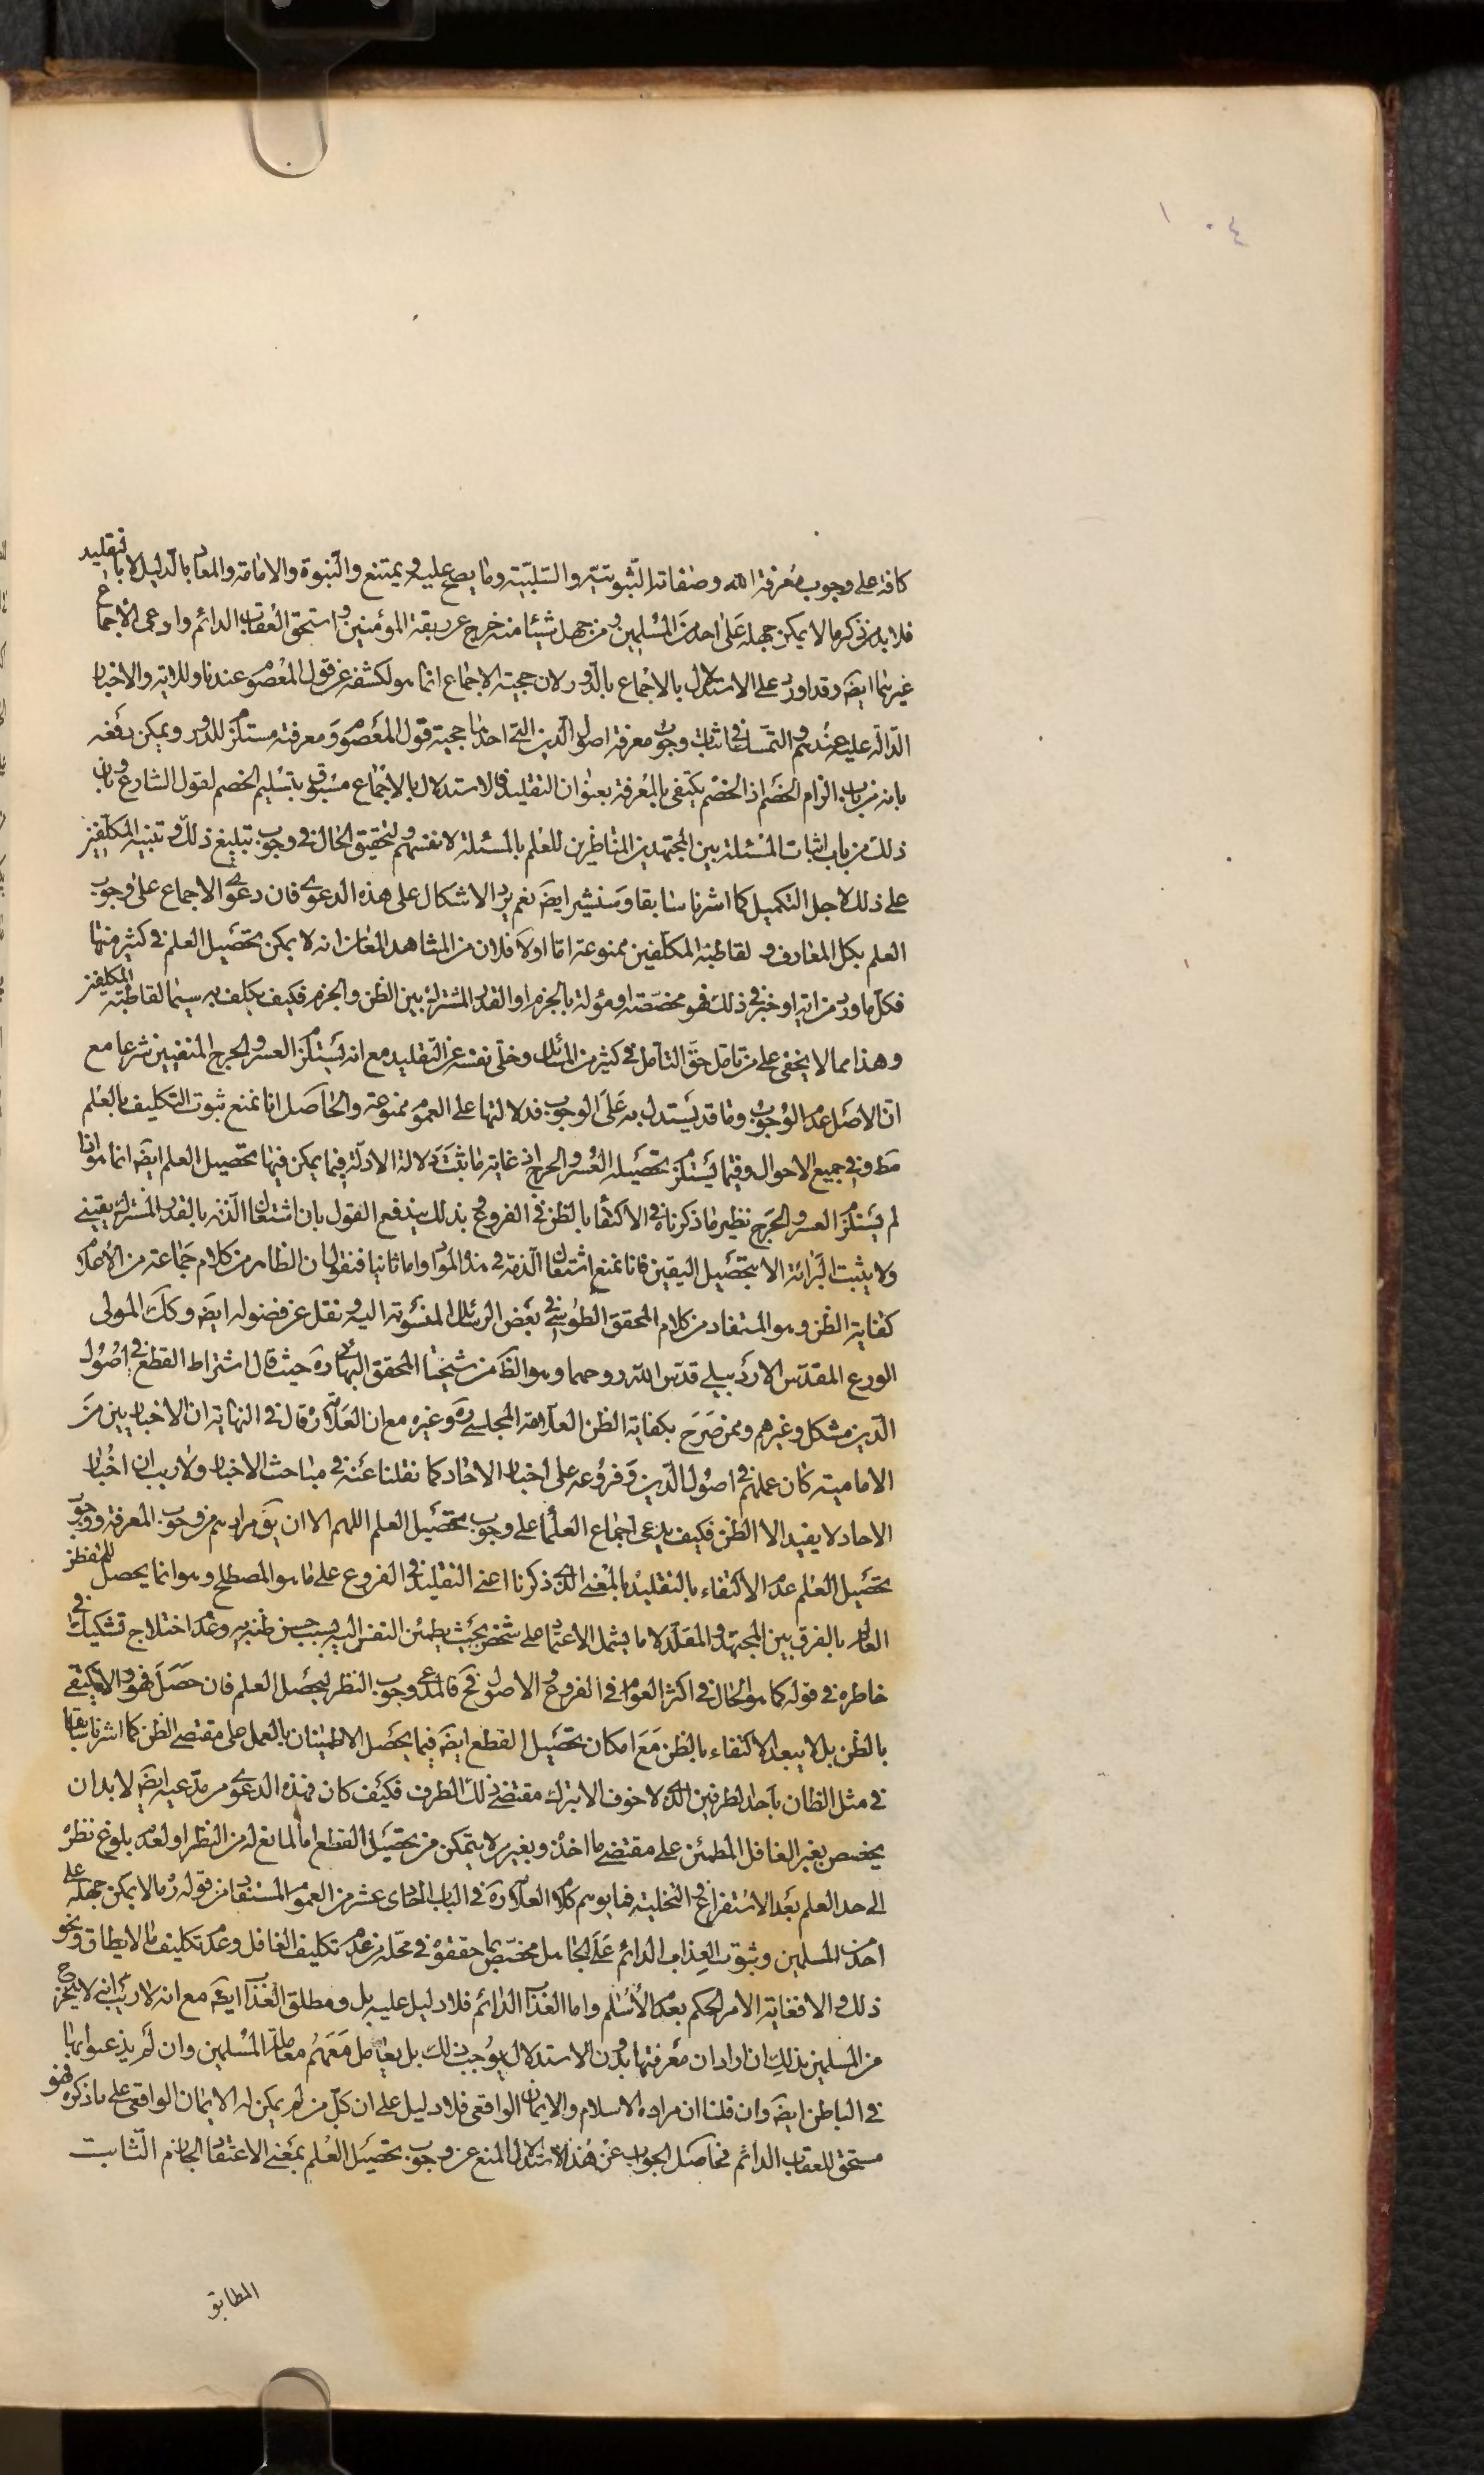 ١٠٤
كافة على وجوب معرفة الله وصفاته الثبوتية والسلبية وما يصح عليه و يمتنع والنبوة والامامة والمعاد بالدليل لا بالتقليد
فلا بد من ذكر ما لا يمكن جهله على احد من المسلمين ومن جهل شيئا منه خرج عن ربقة المؤمنين واستحق العقاب الدائم وادعى الاجماع
غيرهما ايضَ وقد اورد على الاستدلال بالاجماع بالدور لان حجية الاجماع انما هو لكشفه عن قول المعصوم عندنا وللاية والاخبار
الدالة عليه عندهم والتمسك في اثبات وجوب معرفة اصول الدين التي احدها حجية قول المعصوم ومعرفته مستلزم للدور ويمكن دفعه
بانه من باب الزام الخصم اذ الخصم يكتفى بالمعرفة بعنوان التقليد فالاستدلال بالاجماع مسبوق بتسليم الخصم لقول الشارع وبان
ذلك من باب اثبات المسئلة بين المجتهدين المتناظرين للعلم بالمسئلة لانفسهم ولتحقيق الحال في وجوب تبليغ ذلك و تنبيه المكلفين
على ذلك لاجل التكميل كما اشرنا سابقا وسنشير ايضَ نعم يرد الاشكال على هذه الدعوى فان دعوى الاجماع على وجوب
العلم بكل المعارف و لقاطبة المكلفين ممنوعة اما اولا فلان من المشاهد المعاين انه لا يمكن تحصيل العلم في كثير منها
فكل ما ورد من اية او خبر في ذلك فهو مخصصة او مؤلة بالجزم او القدر المشترك بين الظن والجزم فكيف يكلف به سيما لقاطبة المكلفين
وهذا مما لا يخفى على من تامل حق التامل في كثير من المسائل وخلى نفسه عن التقليد مع انه يستلزم العسر والحرج المنفيين شرعا مع
ان الاصل عدم الوجوب وما قد يستدل به على الوجوب فدلالتها على العموم ممنوعة والحاصل انا نمنع ثبوت التكليف بالعلم
مطَ وفي جميع الاحوال وفيما يستلزم تحصيله العسر والحرج اذ غاية ما ثبت دلالة الادلة فيما يمكن فيها تحصيل العلم ايضَ انما هو اذا
لم يستلزم العسر والحرج نظير ما ذكرناه في الاكتفا بالظن في الفروع و بذلك يندفع القول بان اشتغال الذمة بالقدر المشترك يقيني
ولا يثبت البرائة الا بتحصيل اليقين فانا نمنع اشتغال الذمة في هذه الموارد واما ثانيا فنقول ان الظاهر من كلام جماعة من الاعلام
كفاية الظن وهو المستفاد من كلام المحقق الطوسي في بعض الرسائل المنسوبة اليه و نقل عن فصوله ايضَ وكك المولى
الورع المقدس الاردبيلي قدس الله روحهما وهو الظَ من شيخنا المحقق البهائي ره حيث قال اشتراط القطع في اصول
الدين مشكل وغيرهم وممن صرح بكفاية الظن العلامة المجلسي ره وغيره مع ان العلامة ره قال في النهاية ان الاخباريين من
الامامية كان عملهم في اصول الدين وفروعه على اخبار الاحاد كما نقلنا عنه في مباحث الاخبار ولا ريب ان اخبار
الاحاد لا يفيد الا الظن فكيف يدعى اجماع العلماء على وجوب تحصيل العلم اللهم الا ان يقَ مرادهم من وجوب المعرفة ووجوب
تحصيل العلم عدم الاكتفاء بالتقليد بالمعنى الذي ذكرنا اعنى التقليد في الفروع على ما هو المصطلح وهو انما يحصل للمتفطن
العالم بالفرق بين المجتهد والمقلد لا ما يشمل الاعتماد على شخص بحيث يطمئن النفس اليه بسبب حسن ظنه به وعدم اختلاج تشكيك في
خاطره في قوله كما هو الحال في اكثر العوام في الفروع و الاصول فح فالمدعى وجوب النظر لتحصيل العلم فان حصل فهو والا فيكتفى
بالظن بل لا يبعد الاكتفاء بالظن مع امكان تحصيل القطع ايضَ فيما يحصل الاطمينان بالعمل على مقتضى الظن كما اشرنا سابقا
في مثل الظان باحد الطرفين الذي لا خوف الا بترك مقتضى ذلك الطرف فكيف كان فهذه الدعوى من مدعيه ايضَ لا بد ان
يخصص بغير الغافل المطمئن على مقتضى ما اخذه وبغير من لا يتمكن من تحصيل القطع اما لمانع له من النظر او لعدم بلوغ نظره
الى حد العلم بعد الاستفراغ و التخلية فما يوهم كلام العلامة ره في الباب الحادى عشر من العموم المستفاد من قوله ره ما لا يمكن جهله على
احد من المسلمين وثبوت العذاب الدائم على الجاهل مختص بما حققوه في محله من عدم تكليف الغافل وعدم تكليف ما لا يطاق ونحو
ذلك والا فغاية الامر الحكم بعدم الاسلام واما العذاب الدائم فلا دليل عليه بل ومطلق العذاب ايضَ مع انه لا ريب انه لا يخرج
من المسلمين بذلك ان اراد ان معرفتها بدون الاستدلال يوجب ذلك بل يعامل معهم معاملة المسلمين وان لم يذعنوا بها
في الباطن ايضَ وان قلنا ان مراده الاسلام والايمان الواقعى فلا دليل على ان كل من لم يمكن له الايمان الواقعى على ما ذكره فهو
مستحق للعقاب الدائم فحاصل الجواب عن هذا الاستدلال المنع عن وجوب تحصيل العلم بمعنى الاعتقاد الجازم الثابت
المطابق